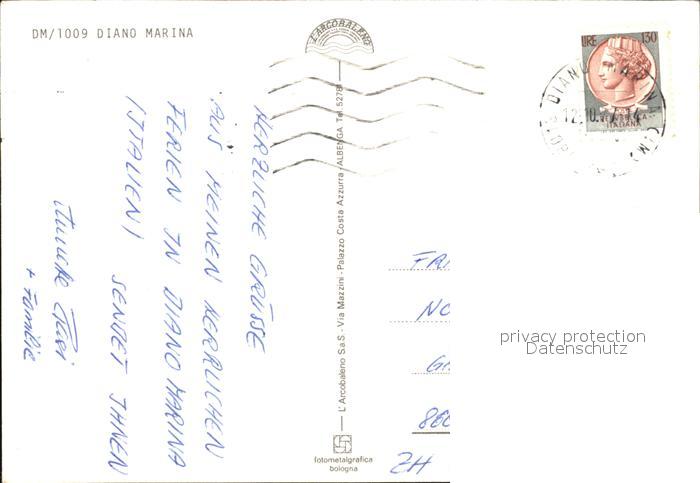 DM/1009 DIANO MARINA
L'ARCOBALENO
LIRE 130
REPUBBLICA
ITALIANA
HERZLICHE GRÜSSE
AUS MEINEN HERRLICHEN
FERIEN IN DIANO MARINA
(ITALIEN)
SENDET IHNEN
+ Familie
L'Arcobaleno S.a.S. - Via Mazzini - Palazzo Costa Azzurra - ALBENGA Tel. 5278
fotometalgrafica
bologna
FR
NO
860
ZH
privacy protection
Datenschutz